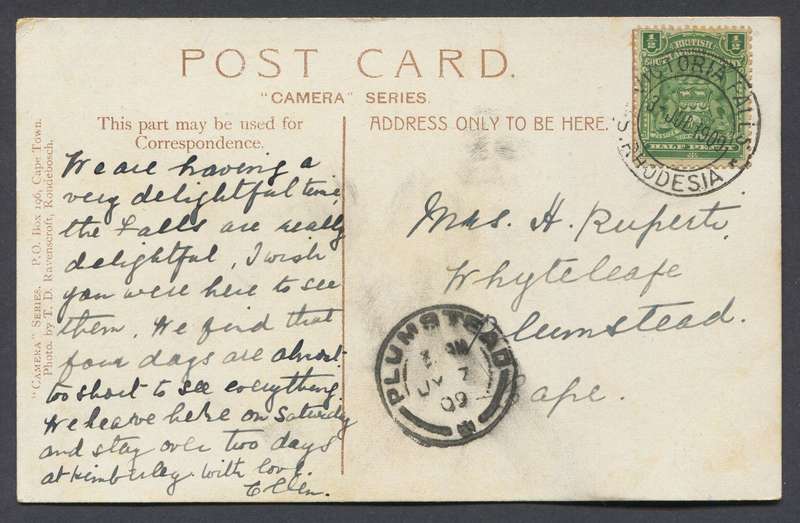 POST CARD.
"CAMERA" SERIES.
This part may be used for
Correspondence.
ADDRESS ONLY TO BE HERE.
"CAMERA" SERIES. P.O. Box 196, Cape Town.
Photo. by T. D. Ravenscroft, Rondebosch.
We are having a
very delightful time,
the Falls are really
delightful, I wish
you were here to see
them. We find that
four days are almost
too short to see everything.
We leave here on Saturday
and stay over two days
at Kimberley. With love.
Ellen.
Mrs. H. Ruperti,
Whyteleafe
Plumstead.
Cape.
1/2 1/2
BRITISH
SOUTH AFRICA COMPANY
HALF PENNY
VICTORIA FALLS
JUL 1909
S. RHODESIA
PLUMSTEAD
JY 7
09